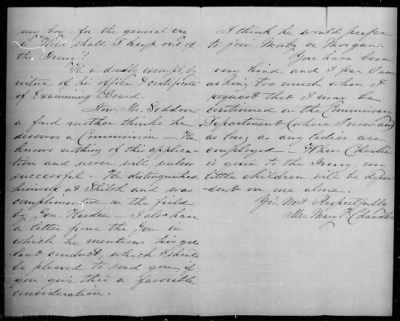 my boy, for the general
Why shall I keep out of
the Army?
He is doubly exempt, by
virtue of his office & certificate
of Examining Board.
Hon Mr. Seddon
a fond mother thinks he
deserves a Commission — He
knows nothing of this applica-
tion and never will, unless
successful. He distinguished
himself at Shiloh and was
complimented on the field
by Gen. Hardee — I also have
a letter from the Gen. in
which he mentions his gal-
lant conduct, which I should
be pleased to send you, if
you give this a favorable
consideration.
I think he would prefer
to join Morby or Morgan.
You have been
very kind and I fear I am
asking too much when I
request that I may be
continued in the
Department (where I now am)
as long as any ladies are
employed — When Charlie
is gone to the Army my
little children will be depen-
dent on me alone.
Yrs. Most Respectfully
Mrs Mary